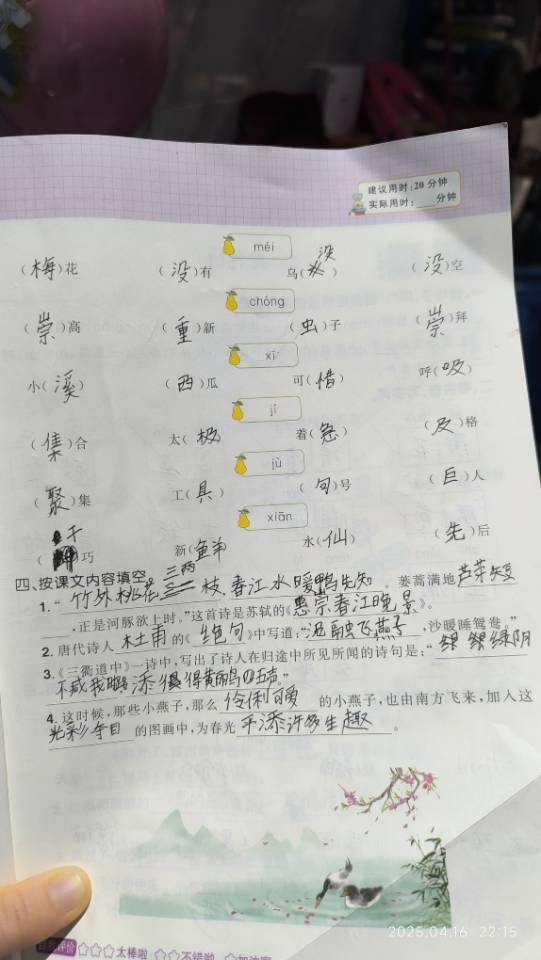 建议用时:20分钟
实际用时:____分钟
méi
(梅)花 (没)有 乌(没) (没)空
chóng
(崇)高 (重)新 (虫)子 (崇)拜
xī
小(溪) (西)瓜 可(惜) 呼(吸)
jí
(集)合 太(极) 着(急) (及)格
jù
(聚)集 工(具) (句)号 (巨)人
xiān
(干)巧 新(鱼羊) 水(仙) (先)后
四、按课文内容填空。
1.“竹外桃花三两枝,春江水暖鸭先知。蒌蒿满地芦芽短
,正是河豚欲上时。”这首诗是苏轼的《惠崇春江晚景》。
2.唐代诗人杜甫的《绝句》中写道:“泥融飞燕子,沙暖睡鸳鸯。”
3.《三衢道中》一诗中,写出了诗人在归途中所见所闻的诗句是:“绿阴
不减 添得黄鹂四五声”
4.这时候,那些小燕子,那么伶俐可爱的小燕子,也由南方飞来,加入这
光彩夺目的图画中,为春光平添许多生趣。
2025.04.16 22:15
自我评价 ☆☆☆太棒啦 ☆☆不错哟 ☆加油啊